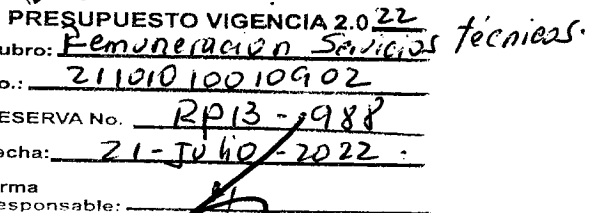 PRESUPUESTO VIGENCIA 2.022
ubro: Remuneracion Servicios técnicos.
o.: 21101010010902
ESERVA No. RP13-988
echa: 21-Julio-2022.
rma
esponsable: